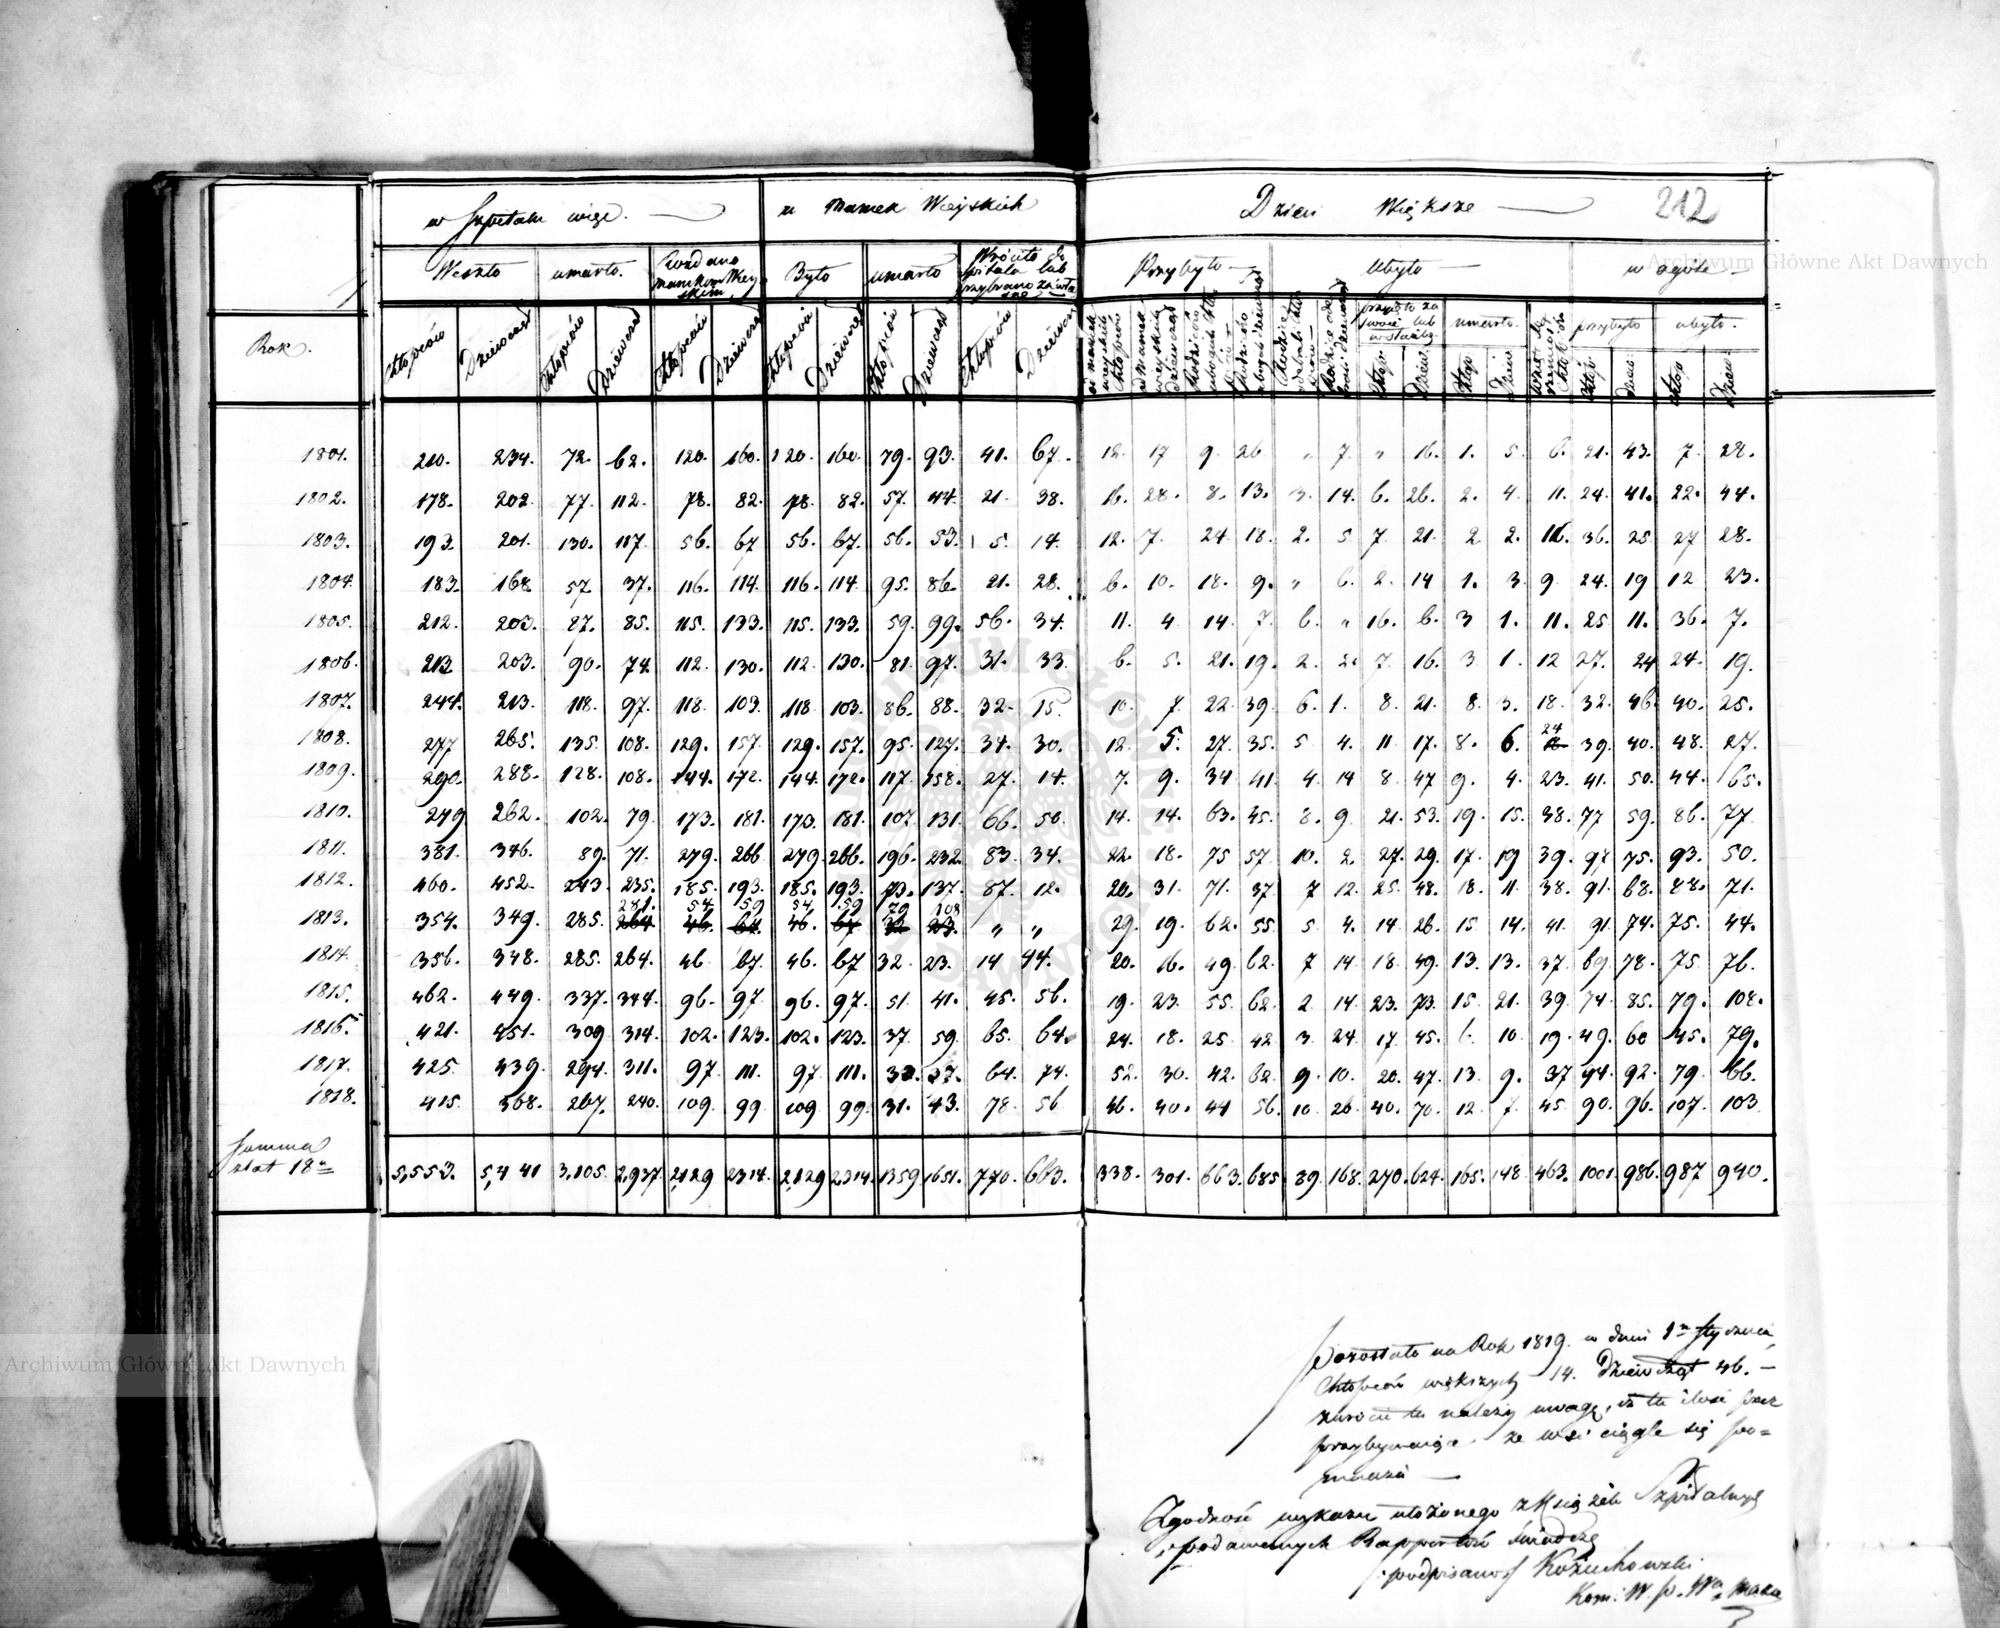 212
w Szpitalu więc.
u Mamek Wieyskich
Dzieci Większe
Weszło
umarło.
Rozdano mamkom Wieyskim
Było
umarło
Wróciło do szpitala lub
Przybyło
Ubyło
w ogóle
Rok.
przyjęto za swoie lub w służbę
umarło.
przybyło
ubyło.
Chłopców Dziewcząt Chłopców Dziewcząt Chłopców Dziewcząt Chłopców Dziewcząt Chłopców Dziewcząt Chłopców Dziewcząt
Chłop. Dziew. Chłop. Dziew.
1801. 210. 234. 72. 62. 120. 160. 120. 160. 79. 93. 41. 67. 12. 17 9. 26 " 7. " 16. 1. 5. 6. 21. 43. 7. 28.
1802. 178. 202. 77. 112. 78. 82. 78. 82. 57. 44. 21. 38. 16. 28. 8. 13. 3. 14. 6. 26. 2. 4. 11. 24. 41. 22. 44.
1803. 193. 201. 130. 117. 56. 67 56. 67. 56. 53. 5. 14. 12. 7. 24 18. 2. 5. 7. 21. 2 2. 16. 36. 25 27 28.
1804. 183. 168. 57. 37. 116. 114. 116. 114 95. 86. 21. 28. 6. 10. 18. 9. " 6. 2. 14 1. 3. 9. 24. 19 12 23.
1805. 212. 203. 87. 85. 115. 133. 115. 133. 59. 99. 56. 34. 11. 4. 14. 7. 6. " 16. 6. 3 1. 11. 25. 11. 36. 7.
1806. 213 203. 90. 74 112. 130. 112. 130. 81. 97. 31. 33. 6. 5. 21. 19. 2. 2. 7. 16. 3 1. 12 27. 24 24. 19.
1807. 244. 213. 118. 97. 118. 103. 118. 103. 86. 88. 32. 15. 10. 7. 22. 39. 6. 1. 8. 21. 8. 3. 18. 32. 46. 40. 25.
1808. 277 265. 135. 108. 129. 157. 129. 157. 95. 127. 34. 30. 12. 5. 27. 35. 5 4. 11 17. 8. 6. 24 39. 40. 48. 27.
1809. 290. 288. 128. 108. 144. 172. 144. 172. 117. 158. 27. 14. 7. 9. 34 41 4. 14 8. 47 9. 4. 23. 41. 50. 44. 65.
1810. 279 262. 102. 79. 173. 181. 173. 181. 107. 131. 66. 50. 14. 14. 63. 45. 8. 9. 21. 53. 19. 15. 38. 77 59. 86. 77
1811. 381. 346. 89. 71. 279. 266 279. 266. 196. 232. 83. 34. 22. 18. 75 57. 10. 2. 27. 29. 17. 19 39. 97 75. 93. 50.
1812. 460. 452. 243. 235. 185. 193. 185. 193. 73. 137. 87. 12. 20. 31. 71. 37 7 12. 25. 48. 18. 11. 38. 91. 68. 88. 71.
281. 54 59 54 59 79 108
1813. 354. 349. 285. 264 46. 67. 46. 67 32 23. " " 29. 19. 62. 55. 5 4. 14 26. 15. 14. 41. 91. 74. 75. 44.
1814. 356. 348. 285. 264. 46 67. 46. 67 32. 23. 14 44. 20. 16. 49. 62. 7 14 18 49. 13. 13. 37. 69 78. 75. 76.
1815. 462. 449. 337. 344. 96. 97. 96. 97. 51. 41. 45. 56. 19. 23. 55. 62. 2. 14. 23. 73. 15. 21. 39. 74. 85. 79. 108.
1816. 421. 451. 309 314. 102. 123. 102. 123. 37. 59. 65. 64. 24. 18. 25. 42 3. 24 17 45. 6. 10 19. 49. 60 45. 79.
1817. 425. 439. 294. 311. 97. 111. 97. 111. 33. 37. 64. 74. 52. 30. 42. 62. 9. 10. 20. 47. 13. 9. 37 94. 92. 79. 66.
1818. 415. 368. 267. 240. 109. 99. 109 99. 31. 43. 78. 56. 46. 40. 44 56. 10 26 40. 70. 12. 7. 45. 90. 96. 107. 103
Summa
z lat 18u 5,553. 5,441 3,105. 2,937. 2129 2314. 2,129 2,314 1359 1651. 770. 663. 338. 301. 663. 685 89. 168. 270. 624. 165. 148. 463. 1001. 986. 987 940.
Pozostało na Rok 1819. w dniu 1m Stycznia,
Chłopców większych 14. Dziewcząt 46. —
zwrócić tu należy uwagę, iż ta ilość przez
przybywaiące ze wsi ciągle się po=
mnaża —
Zgodność wykazu ułożonego z Książek Szpitalnych
i podawanych Rapportów świadczę
podpisano Kożuchowski
Archiwum Główne Akt Dawnych
Archiwum Główne Akt Dawnych